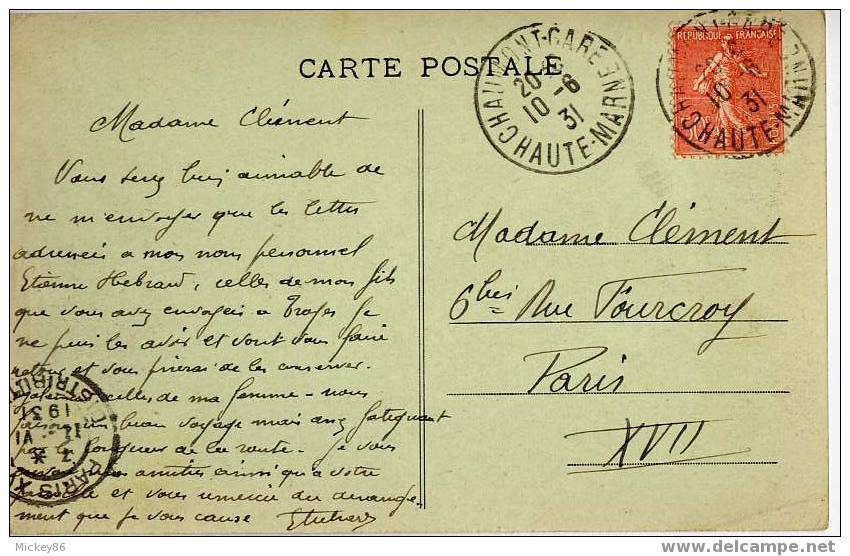 CARTE POSTALE
CHAUMONT-GARE
20
10-6
31
HAUTE-MARNE
REPUBLIQUE FRANÇAISE
CHAUMONT-GARE
10-6
31
HAUTE-MARNE
Madame Clément
Vous serez bien aimable de
ne m'envoyer que les lettres
adressées a mon nom personnel
Etienne Hebrard, celles de mon fils
que vous avez envoyées a Troyes je
ne puis les avoir et vont vous faire
retour et vous prierai de les conserver.
également celles de ma femme - nous
faisons un bon voyage mais assez fatiguant
par la longueur de la route - Je vous
amitiés ainsi qu'a votre
et vous remercie du derange-
ment que je vous cause EHebrard
Madame Clément
6 bis Rue Fourcroy
Paris
XVII
PARIS
VI
1931
DISTRIBUTION
Mickey86
http://www.delcampe.net